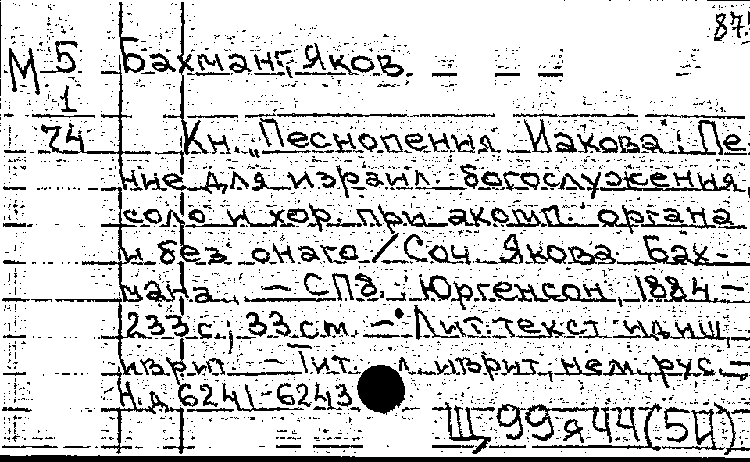 875
М 5 Бахман, Яков.
1
74 Кн. "Песнопения Иакова": Пе-
ние для израил. богослужения,
соло и хор. при акомп. органа
и без онаго / Соч. Якова Бах-
мана. - СПб.: Юргенсон, 1884 -
233 с.; 33 см. - Лит. текст идиш,
иврит. - Тит. л. иврит, нем., рус. -
Н.д 6241-6243
Щ 99 я 44 (5И)